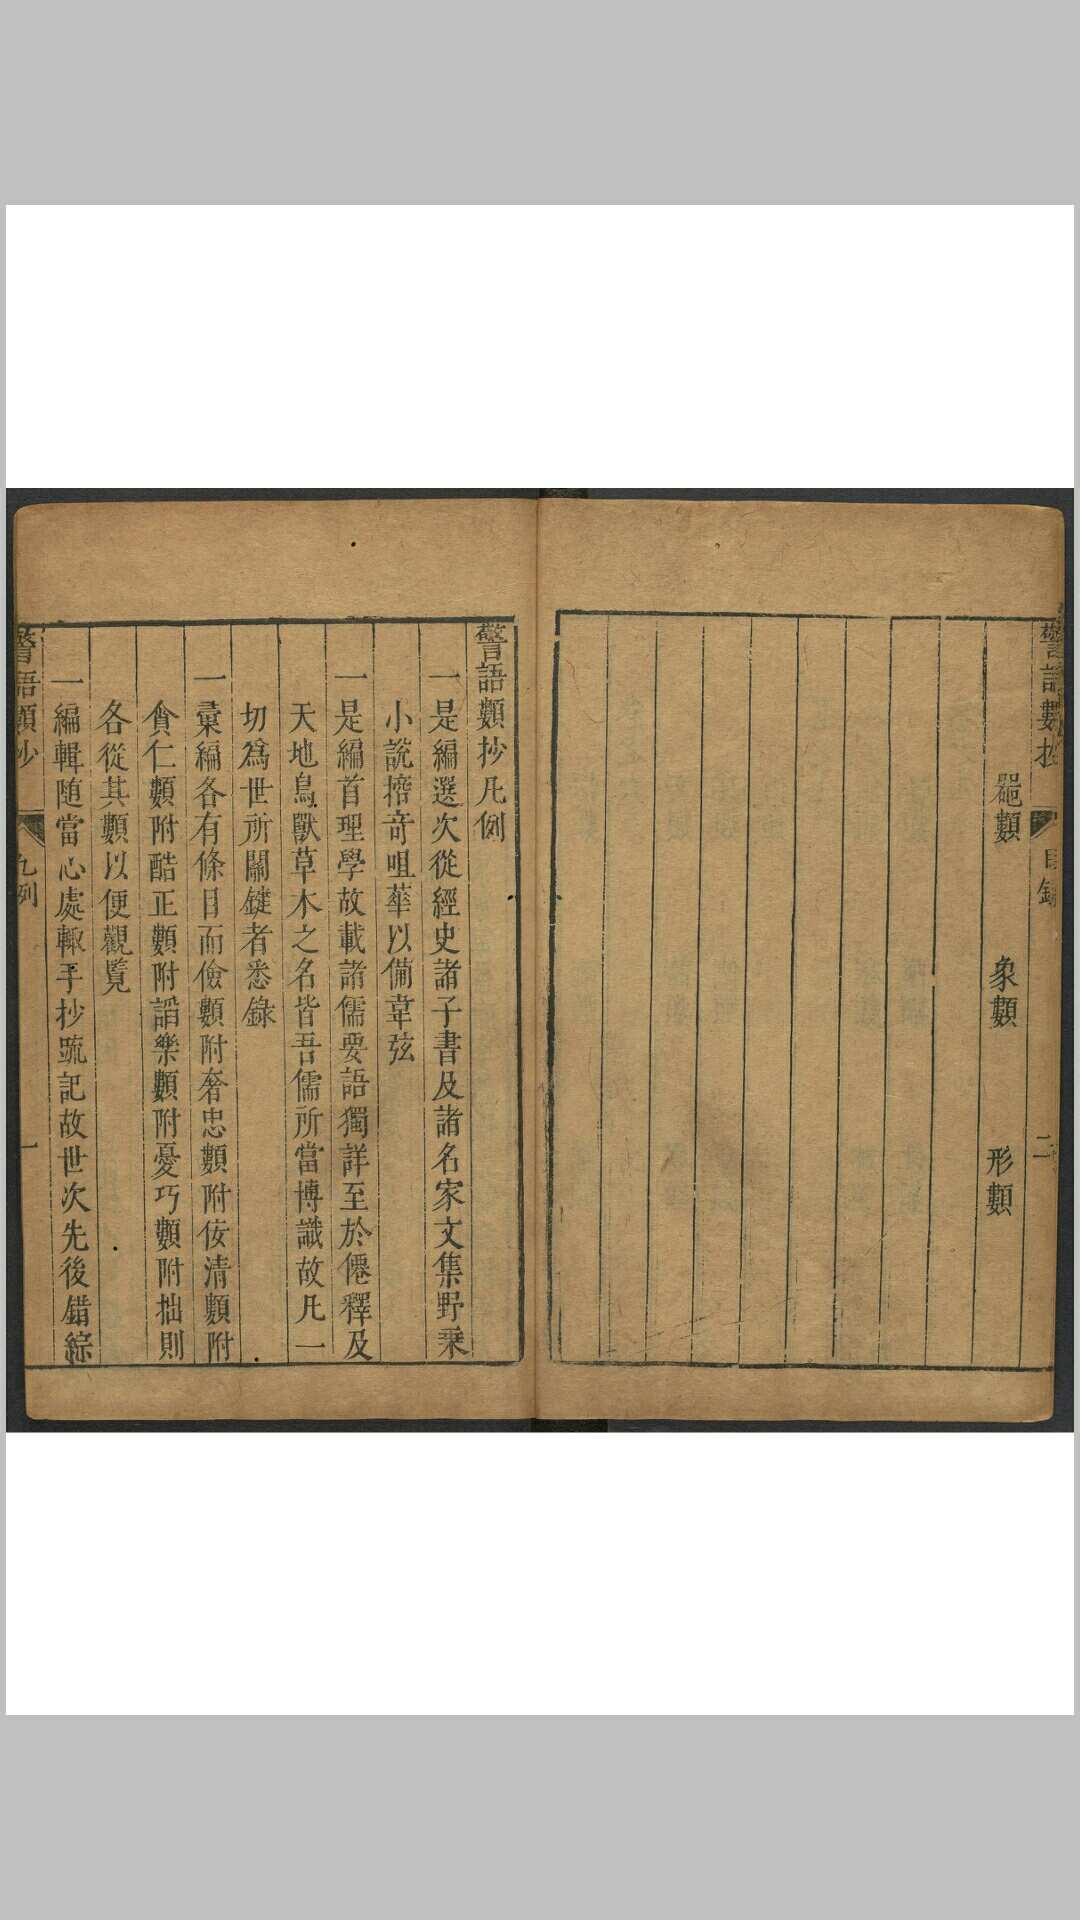 警語類抄
目錄
二
器類　象類　形類
警語類抄凡例
一是編選次從經史諸子書及諸名家文集野乗
小說撘竒咀華以備韋弦
一是編首理學故載諸儒要語獨詳至於僊釋及
天地鳥獸草木之名皆吾儒所當博識故凡一
切爲世所關鍵者悉錄
一彙編各有條目而儉類附奢忠類附佞清類附
貪仁類附酷正類附謟樂類附憂巧類附拙則
各從其類以便觀覧
一編輯随當心處輙手抄疏記故世次先後錯綜
警語類抄
凡例
一